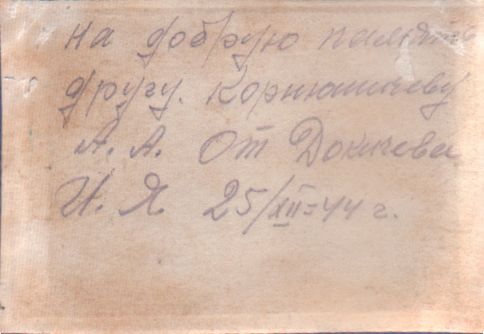 на добрую память
другу. Корнюшичеву
А. А. От Докичева
И. Я 25/XII=44 г.